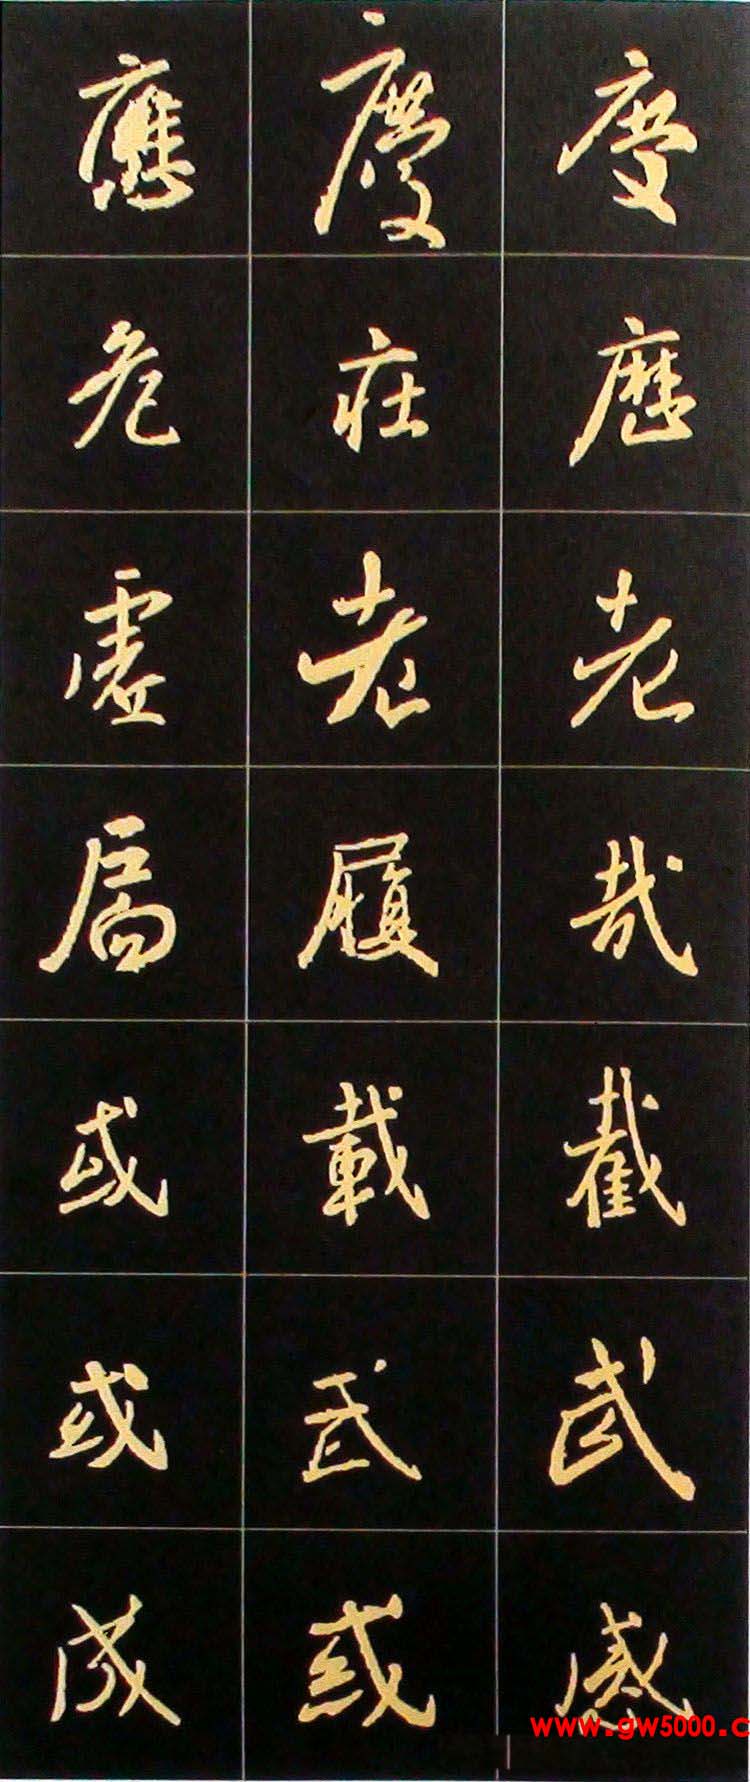 應 慶 度
危 莊 歷
處 老 老
局 履 哉
或 載 截
或 武 武
成 或 感
www.gw5000.c